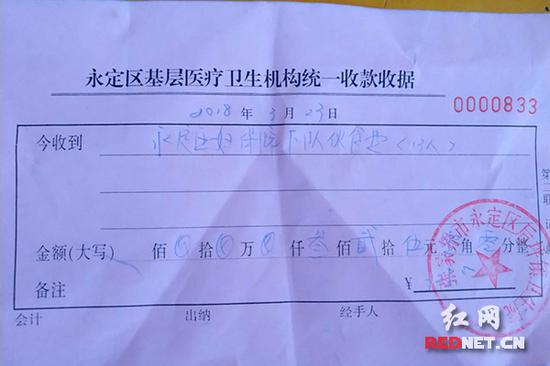 永定区基层医疗卫生机构统一收款收据
2018年3月23日
0000833
今收到 永定区妇保院下队伙食费(13人)
金额(大写) 佰 拾 万 仟叁佰贰拾伍元 角零分整
¥
备注
会计 出纳 经手人
第
联
张家界市永定区
卫生院
红网
REDNET.CN